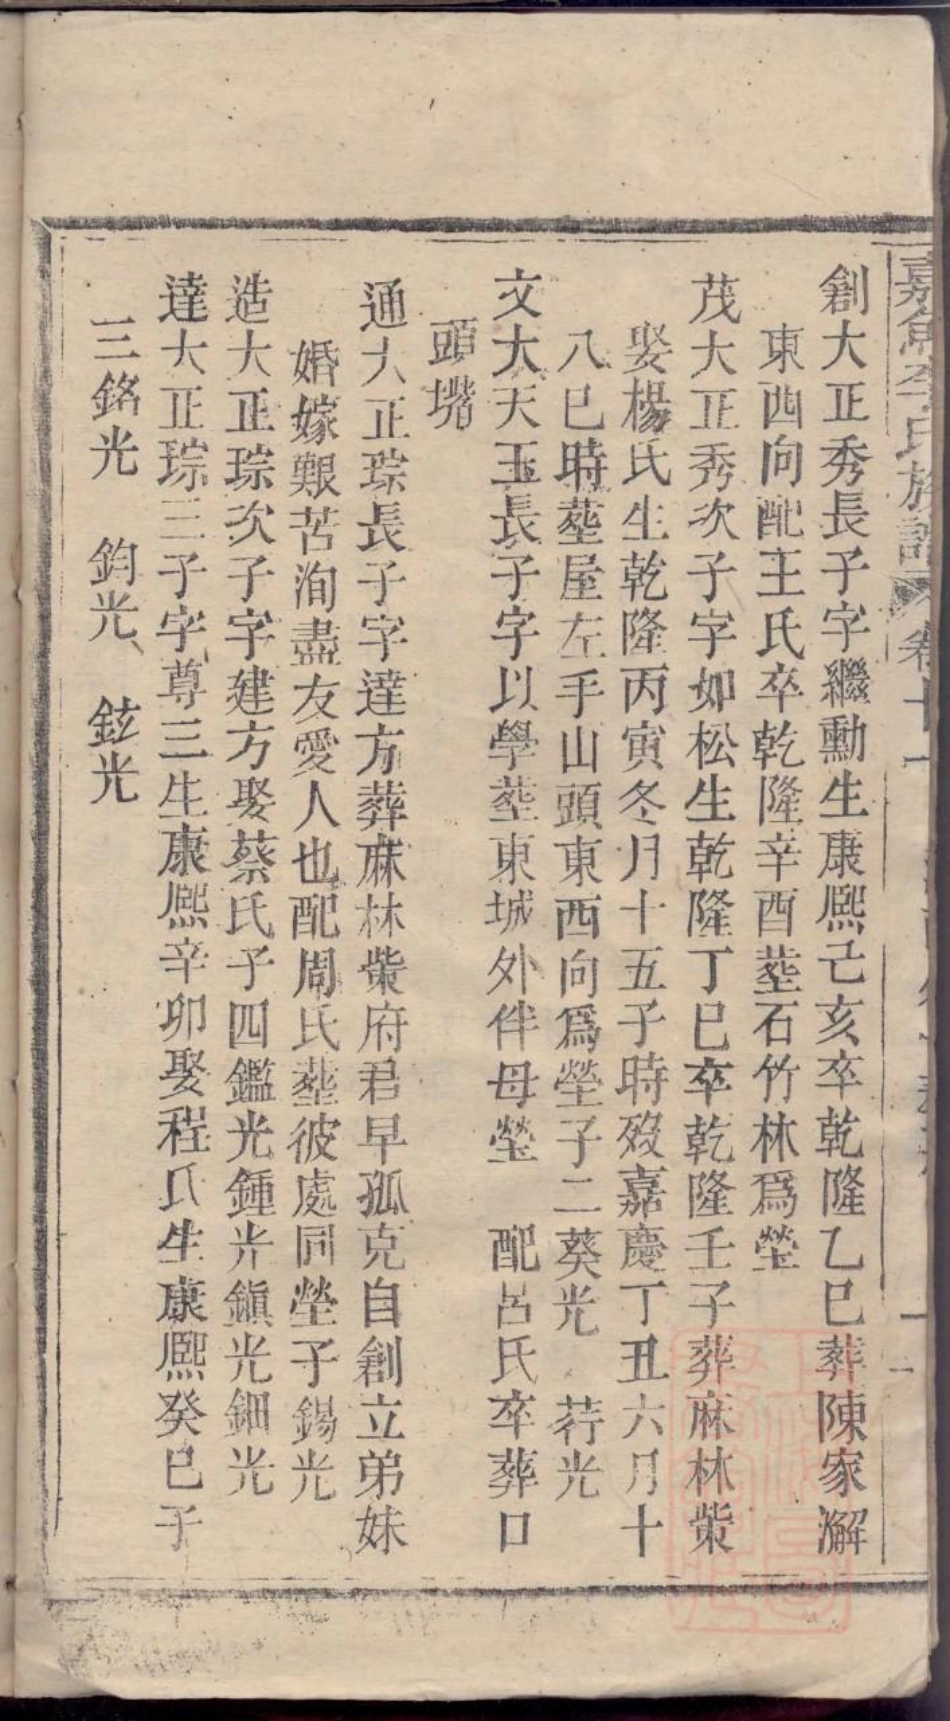 嘉魚李氏族譜 卷十一
創大正秀長子字繼勳生康熙己亥卒乾隆乙巳葬陳家澥
東西向配王氏卒乾隆辛酉塟石竹林爲塋
茂大正秀次子字如松生乾隆丁巳卒乾隆壬子葬麻林柴
娶楊氏生乾隆丙寅冬月十五子時歿嘉慶丁丑六月十
八巳時塟屋左手山頭東西向爲塋子二葵光 荇光
文大天玉長子字以學塟東城外伴母塋 配呂氏卒葬口
頭堦
通大正琮長子字達方葬麻林柴府君早孤克自創立弟妹
婚嫁艱苦洵盡友愛人也配周氏塟彼處同塋子錫光
造大正琮次子字建方娶蔡氏子四鑑光鍾光鎭光鈿光
達大正琮三子字尊三生康熙辛卯娶程氏生康熙癸巳子
三銘光 鈞光 鉉光